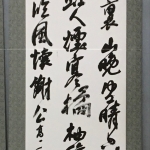 裏山晚望晴
人煙寒橘柚
臨風懷謝公